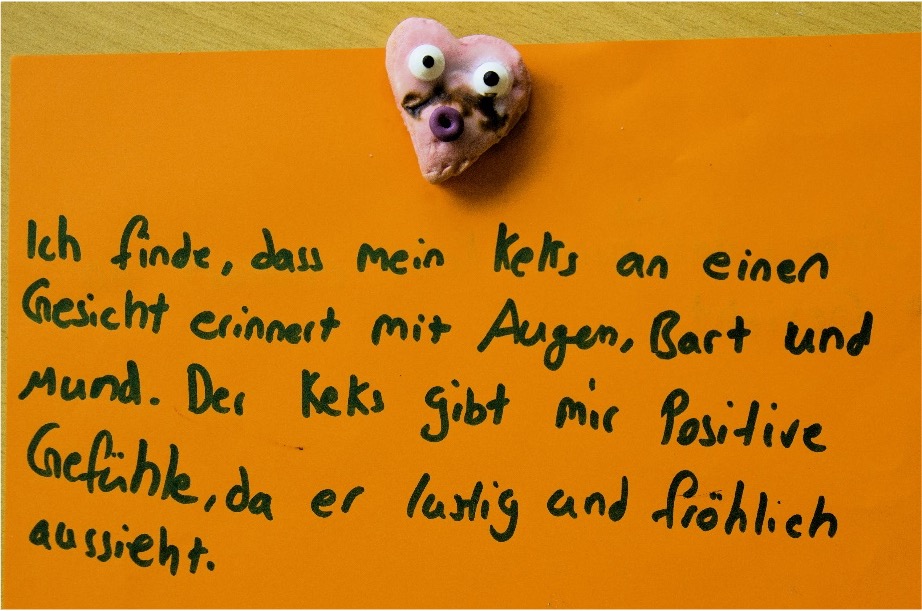 Ich finde, dass mein Keks an einen
Gesicht erinnert mit Augen, Bart und
Mund. Der Keks gibt mir Positive
Gefühle, da er lustig und fröhlich
aussieht.